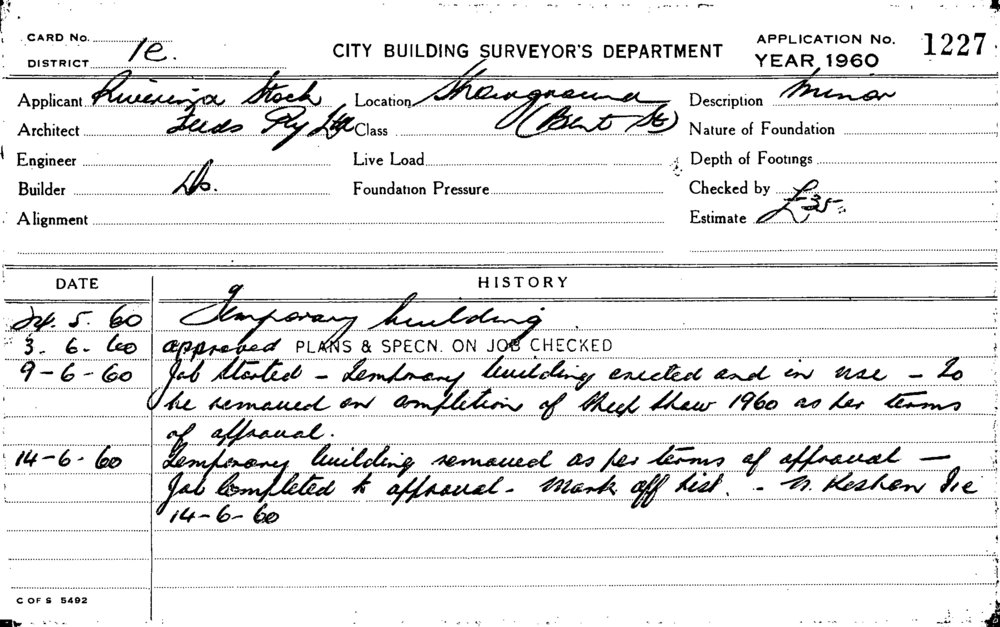 CARD No. 1e.
DISTRICT
CITY BUILDING SURVEYOR'S DEPARTMENT
APPLICATION No. 1227
YEAR 1960
Applicant Riverina Stock Location Showground Description Minor
Architect Feeds Pty Ltd Class (Bent St) Nature of Foundation
Engineer Live Load Depth of Footings
Builder Do. Foundation Pressure Checked by
Alignment Estimate £35
DATE HISTORY
24. 5. 60 Temporary building
3. 6. 60 approved PLANS & SPECN. ON JOB CHECKED
9-6-60 Job Started - Temporary building erected and in use - To
be removed on completion of Sheep Show 1960 as per terms
of approval.
14-6-60 Temporary building removed as per terms of approval -
Job Completed to approval - Mark off List. -
14-6-60
C OF S 5492